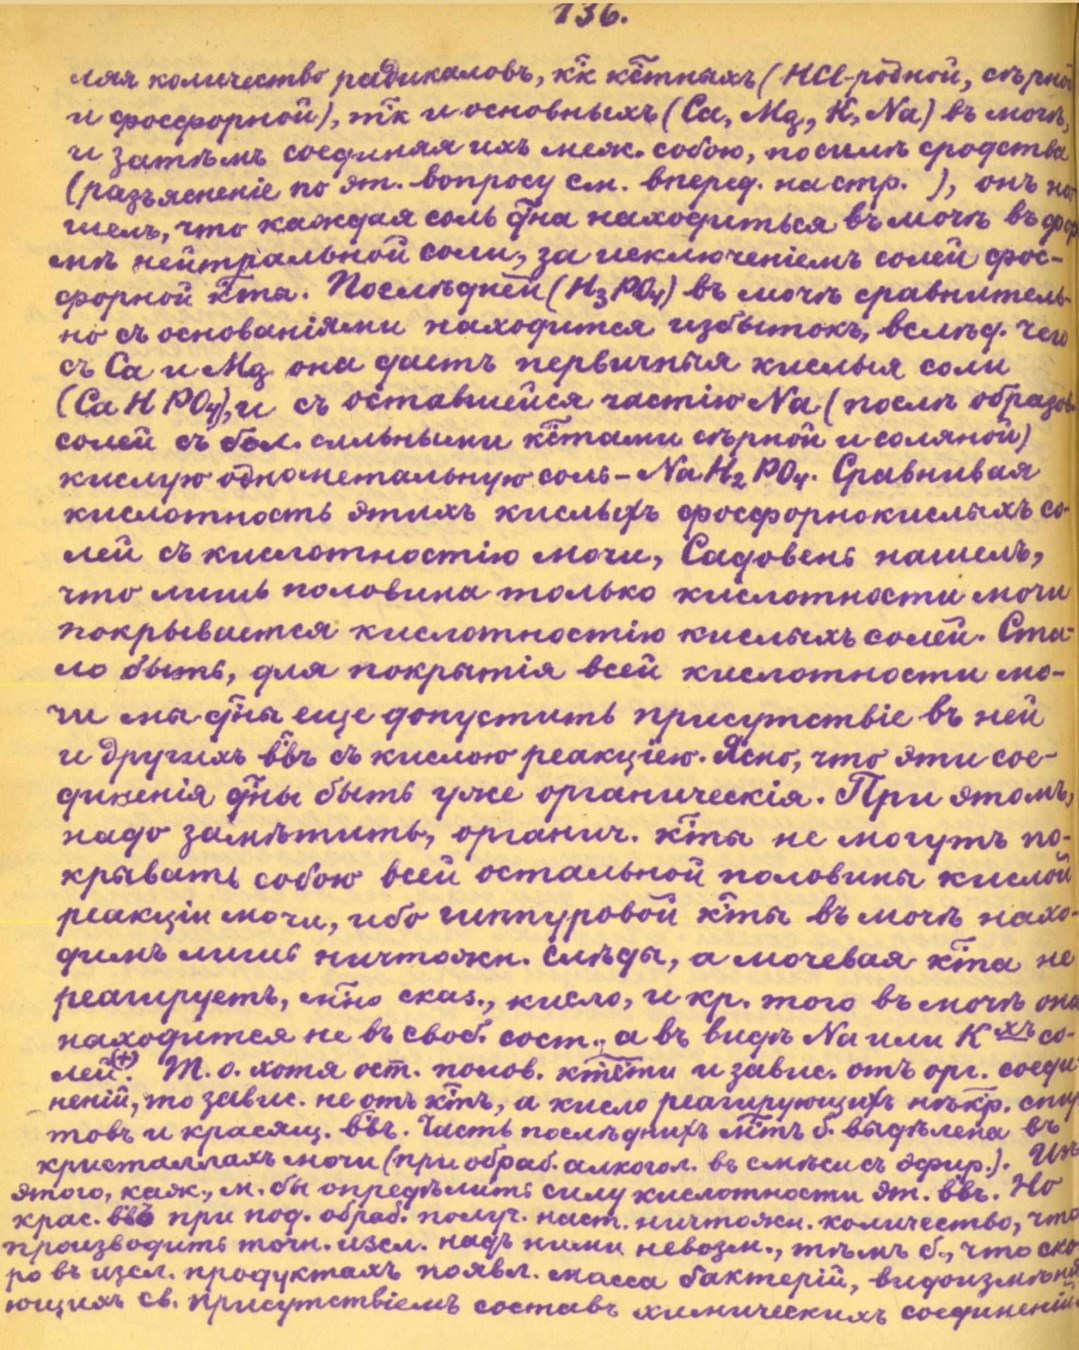 136.
ляя количество радикаловъ, к̅к к̅тныхъ (HCl-ро̅дной, сѣрной
и фосфорной), т̅к и основныхъ (Ca, Mg, K, Na) въ мочѣ,
и затѣмъ соединяя ихъ меж. собою, по силѣ сродства
(разъясненіе по эт. вопросу см. вперед. на стр. ), онъ на-
шелъ, что каждая соль д̅на находиться въ мочѣ въ фор-
мѣ нейтральной соли, за исключеніемъ солей фос-
форной к̅ты. Послѣдней (H3PO4) въ мочѣ сравнитель-
но съ основаніями находится избытокъ, вслѣд. чего
съ Ca и Mg она даетъ первичныя кислыя соли
(CaHPO4), и съ оставшейся частію Na (послѣ образов.
солей съ бол. сильными к̅тами сѣрной и соляной)
кислую однометальную соль – NaH2PO4. Сравнивая
кислотность этихъ кислыхъ фосфорнокислыхъ со-
лей съ кислотностію мочи, Садовень нашелъ,
что лишь половина только кислотности мочи
покрывается кислотностію кислыхъ солей. Ста-
ло быть, для покрытія всей кислотности мо-
чи мы д̅ны еще допустить присутствіе въ ней
и другихъ в̅въ съ кислою реакціею. Ясно, что эти сое-
диненія д̅ны быть уже органическія. При этомъ,
надо замѣтить, органич. к̅ты не могутъ по-
крывать собою всей остальной половины кислой
реакціи мочи, ибо гиппуровой к̅ты въ мочѣ нахо-
димъ лишь ничтожн. слѣды, а мочевая к̅та не
реагируетъ, м̅но сказ., кисло, и кр. того въ мочѣ она
находится не въ своб. сост., а въ видѣ Na или K хъ со-
лей.(+) Т. о. хотя ост. полов. к̅т̅ти и завис. отъ орг. соеди-
неній, то завис. не отъ к̅тъ, а кисло реагирующихъ нѣк̅р. спир-
товъ и красящ. в̅въ. Часть послѣднихъ м̅тъ б. выдѣлена въ
кристаллахъ мочи (при обраб. алкогол. въ смѣси съ эфир.). Изъ
этого, каж., м. бы опредѣлить силу кислотности эт. ввъ. Но
крас. ввъ при под. обраб. получ. наст. ничтожн. количество, что
производить точн. изсл. надъ ними невозм., тѣмъ б., что ско-
ро въ изсл. продуктахъ появл. масса бактерій, видоизмѣня-
ющихъ св. присутствіемъ составъ химическихъ соединеній.